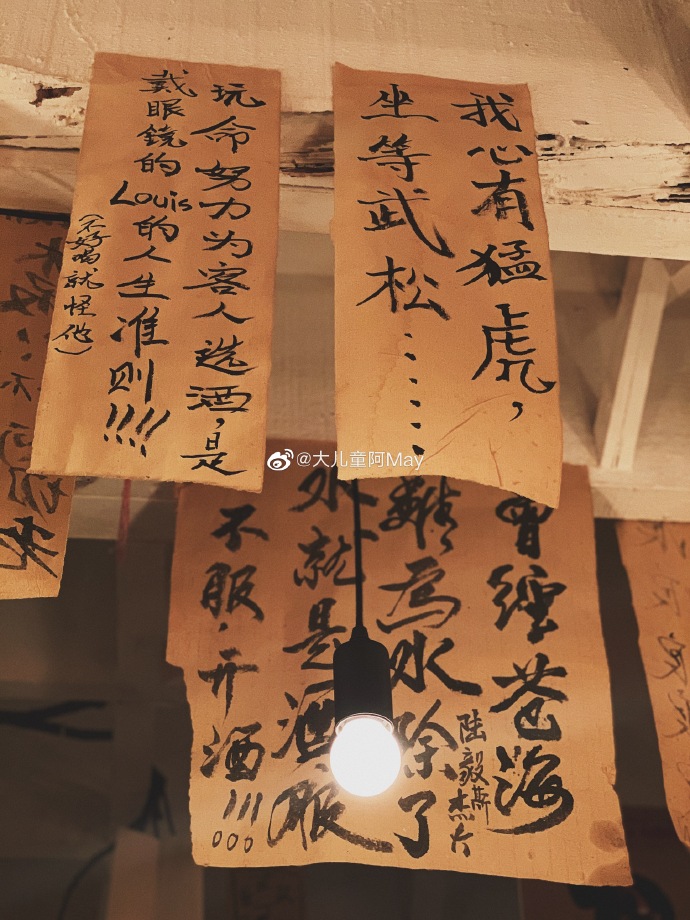 我心有猛虎，
坐等武松……
玩命努力为客人选酒，是
戴眼鏡的Louis的人生准则!!!!
(不好喝就怪他)
@大儿童阿May
曾經苍海
難為水除了
就是酒服
不服，开酒!!!